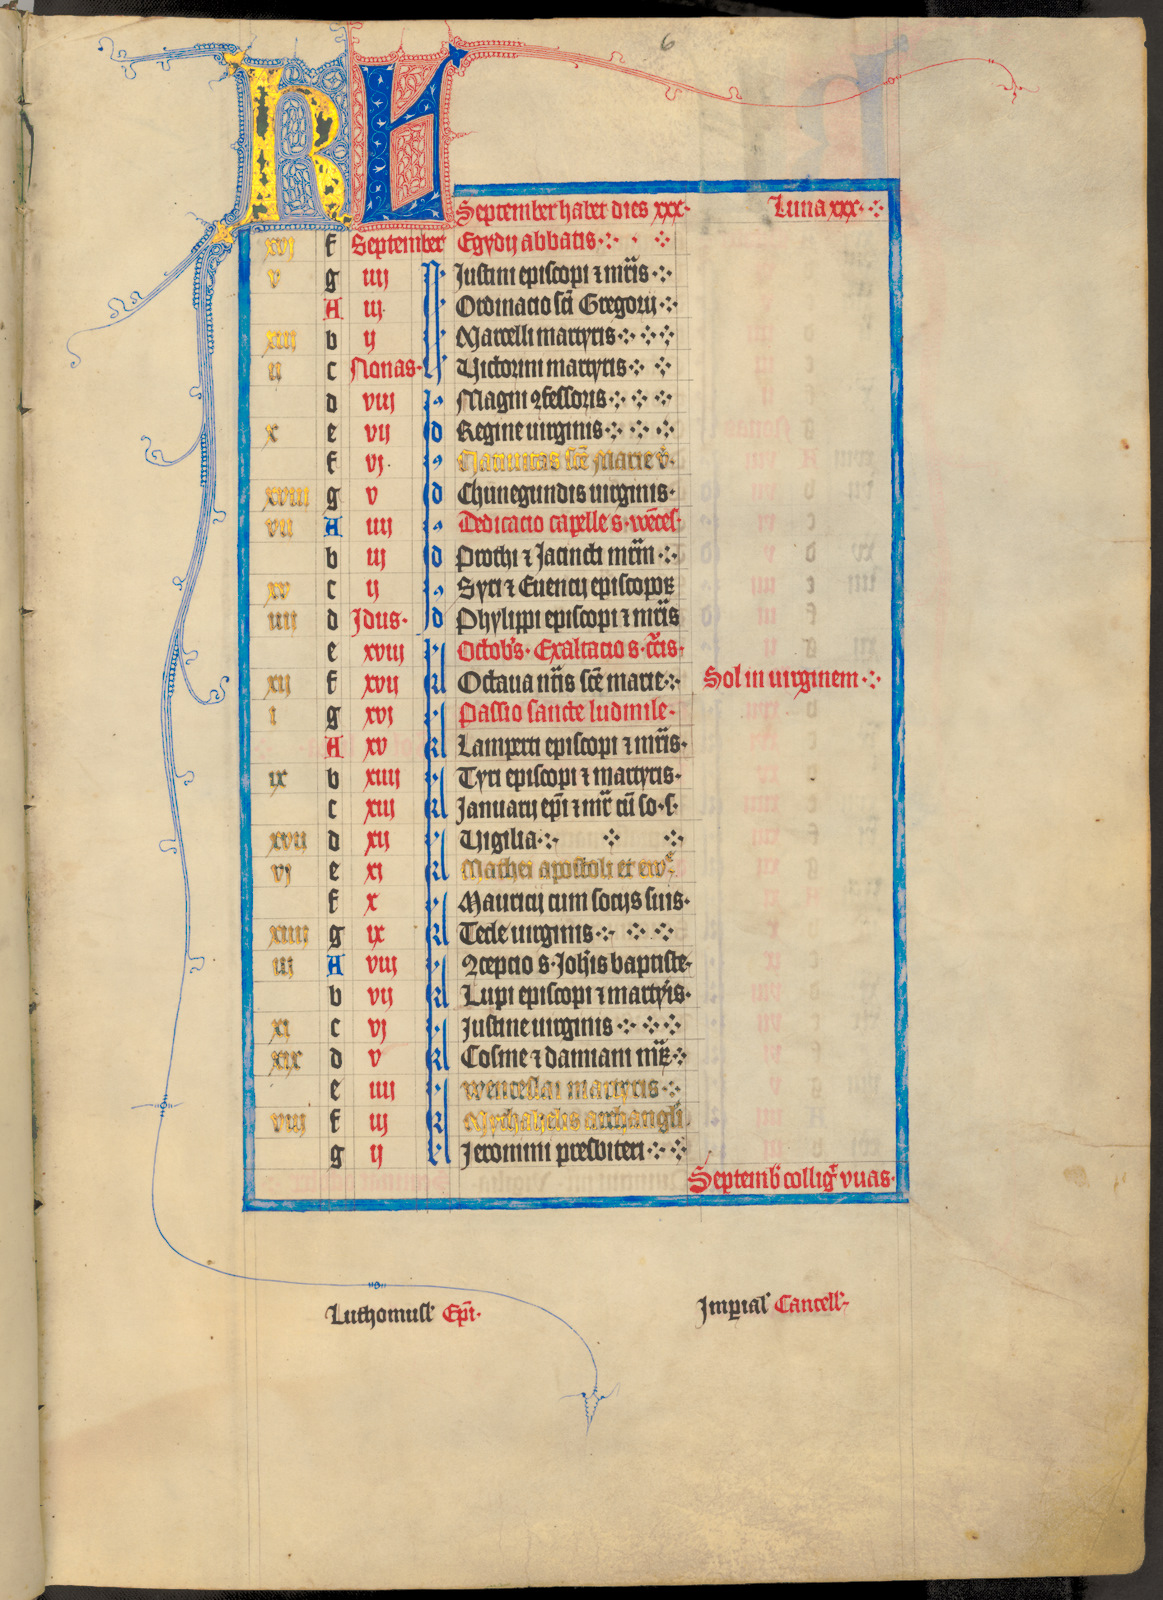 6
KL
September habet dies xxx· Luna xxx·
xvj f September Egydij abbatis·
v g iiij N Justini episcopi ⁊ mr̄is
A iij o Ordinacio sc̄i Gregorij
xiij b ij Marcelli martyris
ij c Nonas· Victorini martyris
d viij Magni ꝯfessoris
x e vij Regine uirginis
f vj· Natiuitas sc̄e Marie v̄·
xviij g v Chunegundis uirginis·
vij A iiij Dedicacio capelle s· wēcesl·
b iij Prothi ⁊ Jacincti mr̄m
xv c ij Syri ⁊ Euencij episcopoꝝ
iiij d Jdus· Phylippi episcopi ⁊ mr̄is
e xviij kl Octob's· Exaltacio s· cr̄cis·
xij f xvij kl Octaua nr̄is sc̄e marie Sol in uirginem
i g xvj kl Passio sancte ludmile·
A xv kl Lamperti episcopi ⁊ mr̄is·
ix b xiiij kl Tyri episcopi ⁊ martyris·
c xiij kl Januarij ep̄i ⁊ mr̄ cū so·s·
xvij d xij kl Vigilia
vj e xj kl Mathei apostoli et ew̄·
f x kl Mauricij cum socijs suis·
xiiij g ix kl Tecle uirginis
iij A viij kl ꝯcepcio s· Joh̄is baptiste·
b vij kl Lupi episcopi ⁊ martyris·
xj c vj kl Justine uirginis
xix d v kl Cosme ⁊ damiani mr̄ꝝ
e iiij kl wenceslai martyris
viij f iij kl Mychahelis archangeli
g ij kl Jeronimi presbiteri
Septemb' collig̃ vuas·
Luthomusl' Ep̄i· Jmp̄ial' Cancell'